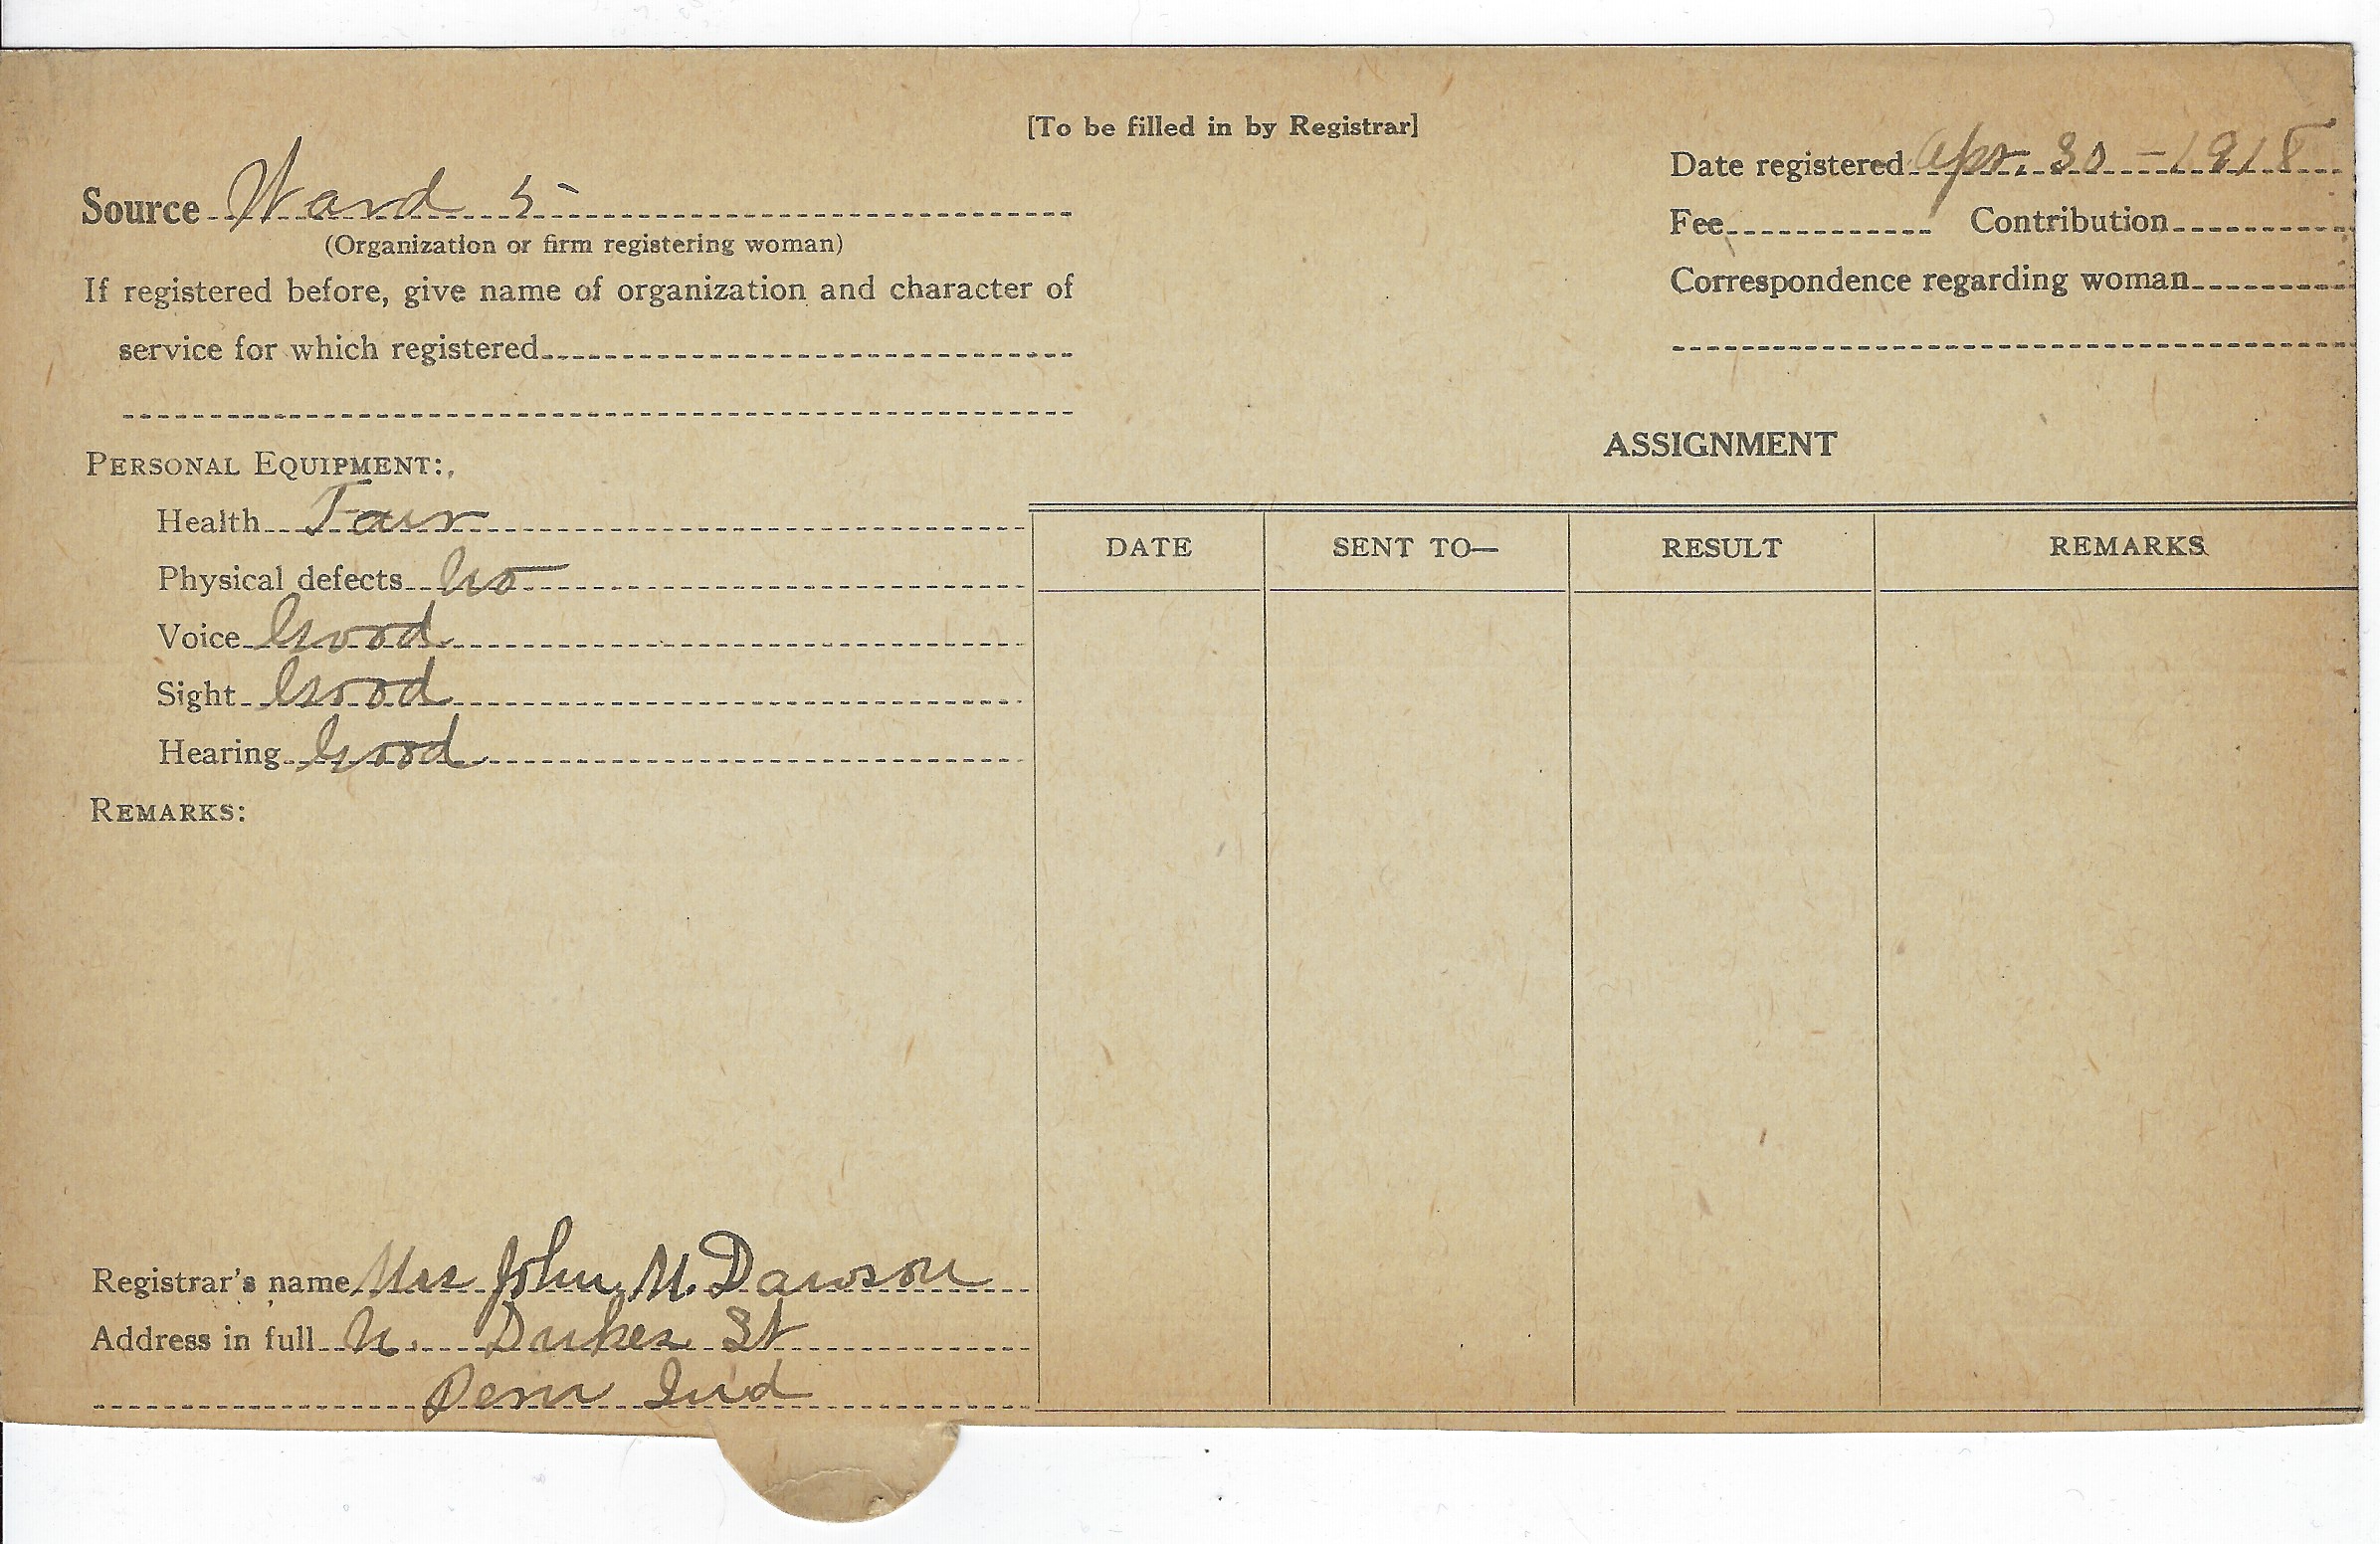 [To be filled in by Registrar]
Source Ward 5
(Organization or firm registering woman)
If registered before, give name of organization and character of
service for which registered
Date registered Apr. 30 - 1918
Fee Contribution
Correspondence regarding woman
PERSONAL EQUIPMENT:
Health Fair
Physical defects no
Voice Good
Sight Good
Hearing Good
REMARKS:
ASSIGNMENT
DATE SENT TO— RESULT REMARKS
Registrar's name Mrs John M. Dawson
Address in full N. Dukes St
Peru Ind